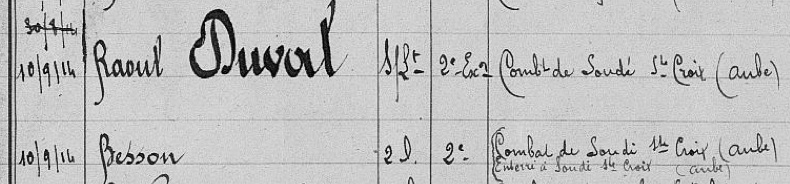 30/8/14
10/9/14 Raoul Duval S/Lt 2e Combt de Soudé Ste Croix (aube)
10/9/14 Besson 2e Combat de Soudé Ste Croix (aube)
Enterré à Soudé Ste Croix (aube)